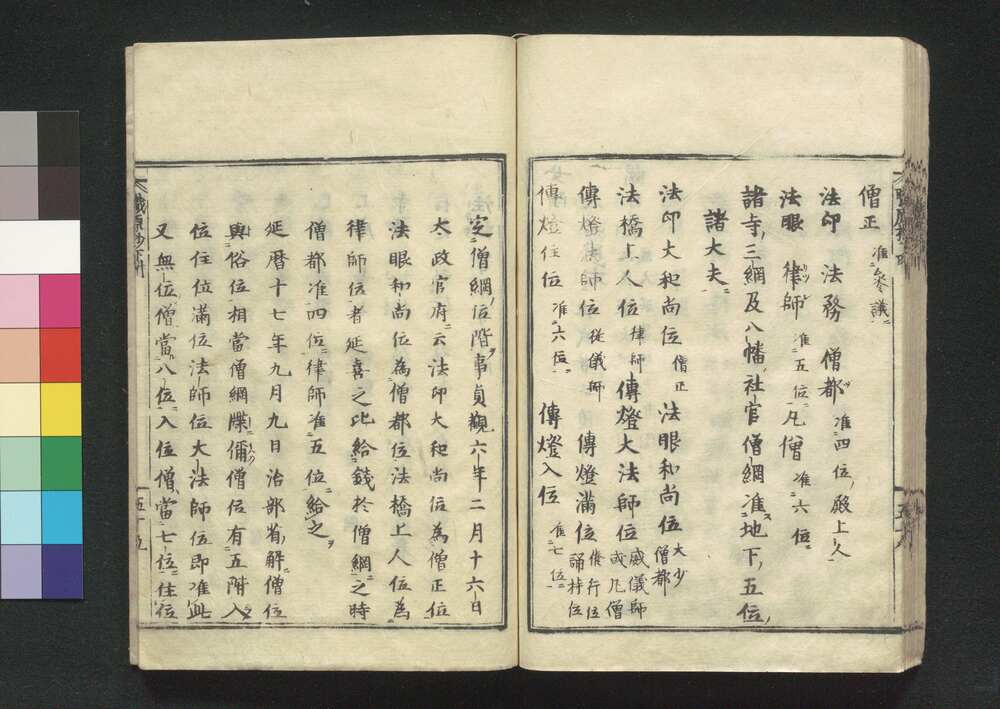 僧正 准参議ニ
法印 法務 僧都 准四位殿上人
法眼 律師 准五位 凡僧 准六位
諸寺三綱及八幡社官僧綱准地下五位
諸大夫
法印大和尚位 僧正 法眼和尚位 大少僧都
法橋上人位 律師 傳燈大法師位 威儀師或凡僧
傳燈法師位 従儀師 傳燈滿位 修行位誦持位
傳燈住位 准六位 傳燈入位 准七位
定僧綱位階事貞観六年二月十六日
太政官府云法印大和尚位為僧正位
法眼和尚位為僧都位法橋上人位為
律師位者延喜之比給錢於僧綱之時
僧都准四位律師准五位給之
延暦十七年九月九日治部省解僧位
與俗位相當僧綱牒偁僧位有五階入
位住位滿位法師位大法師位即准此
又無位僧當八位入位僧當七位住位
職原抄下
五十五